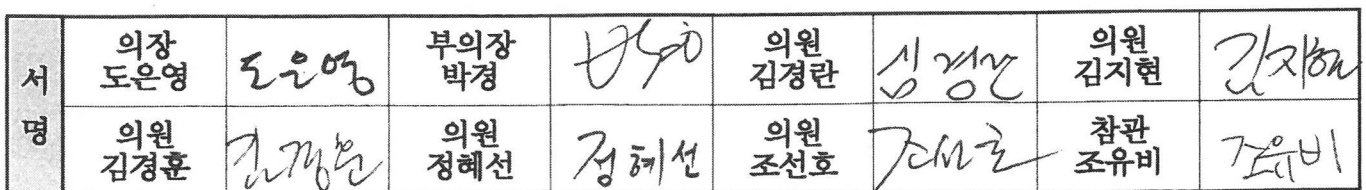 서명
의장 도은영 도은영 부의장 박경 의원 김경란 심경란 의원 김지현 김지현
의원 김경훈 김경훈 의원 정혜선 정혜선 의원 조선호 조선호 참관 조유비 조유비